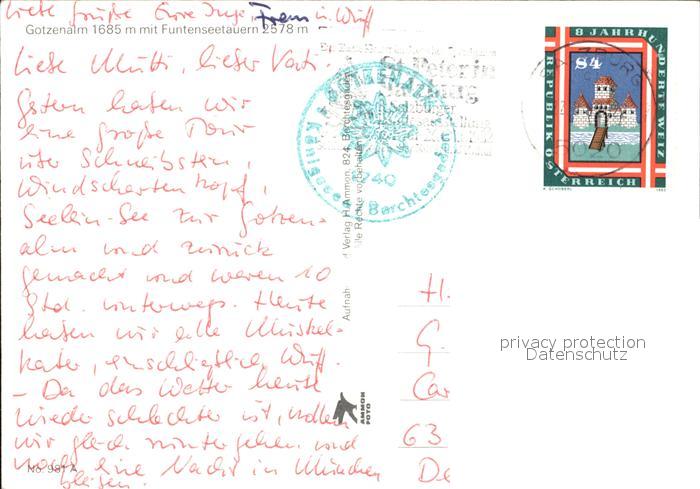 Liebe Grüße Eure Inge, Franz u. Wuff
Gotzenalm 1685 m mit Funtenseetauern 2578 m
Liebe Mutti, lieber Vati.
Gestern haben wir
eine große Tour
über Schneibstein,
Windschartenkopf,
Seelein-See zur Gotzen-
alm und zurück
gemacht und waren 10
Std. unterwegs. Heute
haben wir alle Muskel-
kater, einschließlich Wuff.
– Da das Wetter heute
wieder schlechter ist, wollen
wir gleich runtergehen und
noch eine Nacht in München
bleiben.
No. 981 A
St. Peter in
GOTZENALM
Königssee
8240
Berchtesgaden
Verlag H. Ammon, 824 Berchtesgaden
Alle Rechte vorbehalten
Aufnah
AMMON
FOTO
8 JAHRHUNDERTE WEIZ
S4
REPUBLIK ÖSTERREICH
1982
5020
H.
G.
Car
63
De
privacy protection
Datenschutz